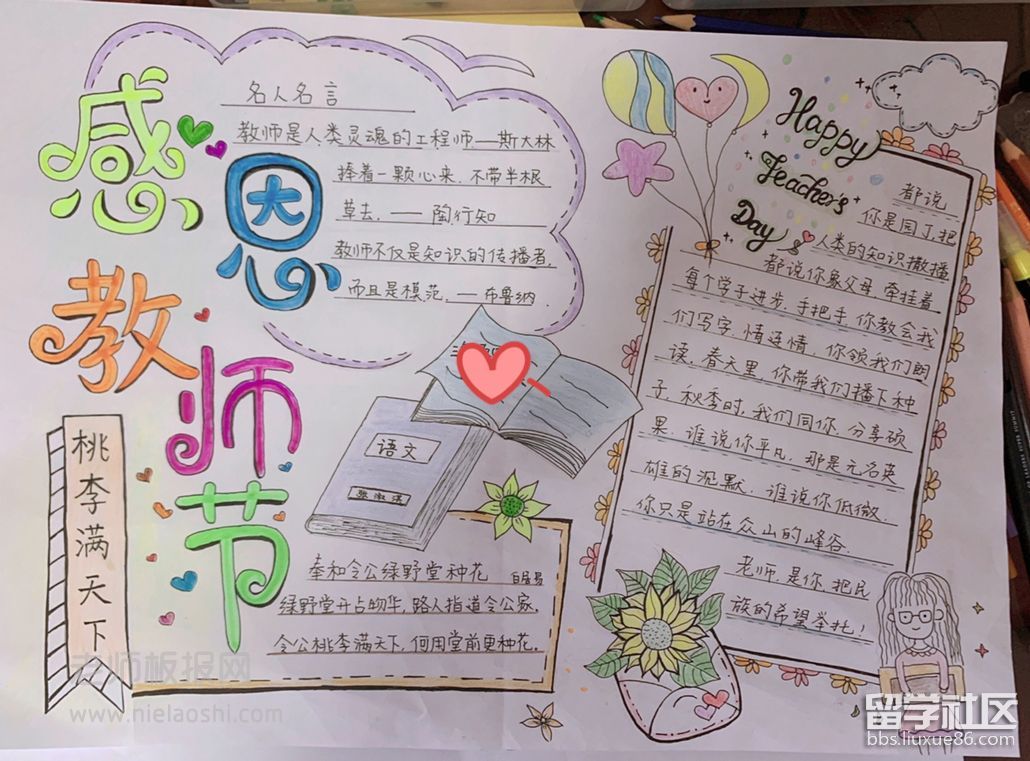 感恩教师节
名人名言
教师是人类灵魂的工程师——斯大林
捧着一颗心来，不带半根
草去，——陶行知
教师不仅是知识的传播者，
而且是模范，——布鲁纳
Happy
Teacher's
Day
都说
你是园丁，把
人类的知识撒播
都说你象父母，牵挂着
每个学子进步，手把手，你教会我
们写字，情连情，你领我们朗
读，春天里，你带我们播下种
子，秋季时，我们同你，分享硕
果，谁说你平凡，那是无名英
雄的沉默，谁说你低微，
你只是站在众山的峰谷，
老师，是你，把民
族的希望举托！
语文
桃李满天下
奉和令公绿野堂种花 白居易
绿野堂开占物华，路人指道令公家，
令公桃李满天下，何用堂前更种花。
老师板报网
www.nielaoshi.com
留学社区
bbs.liuxue86.com